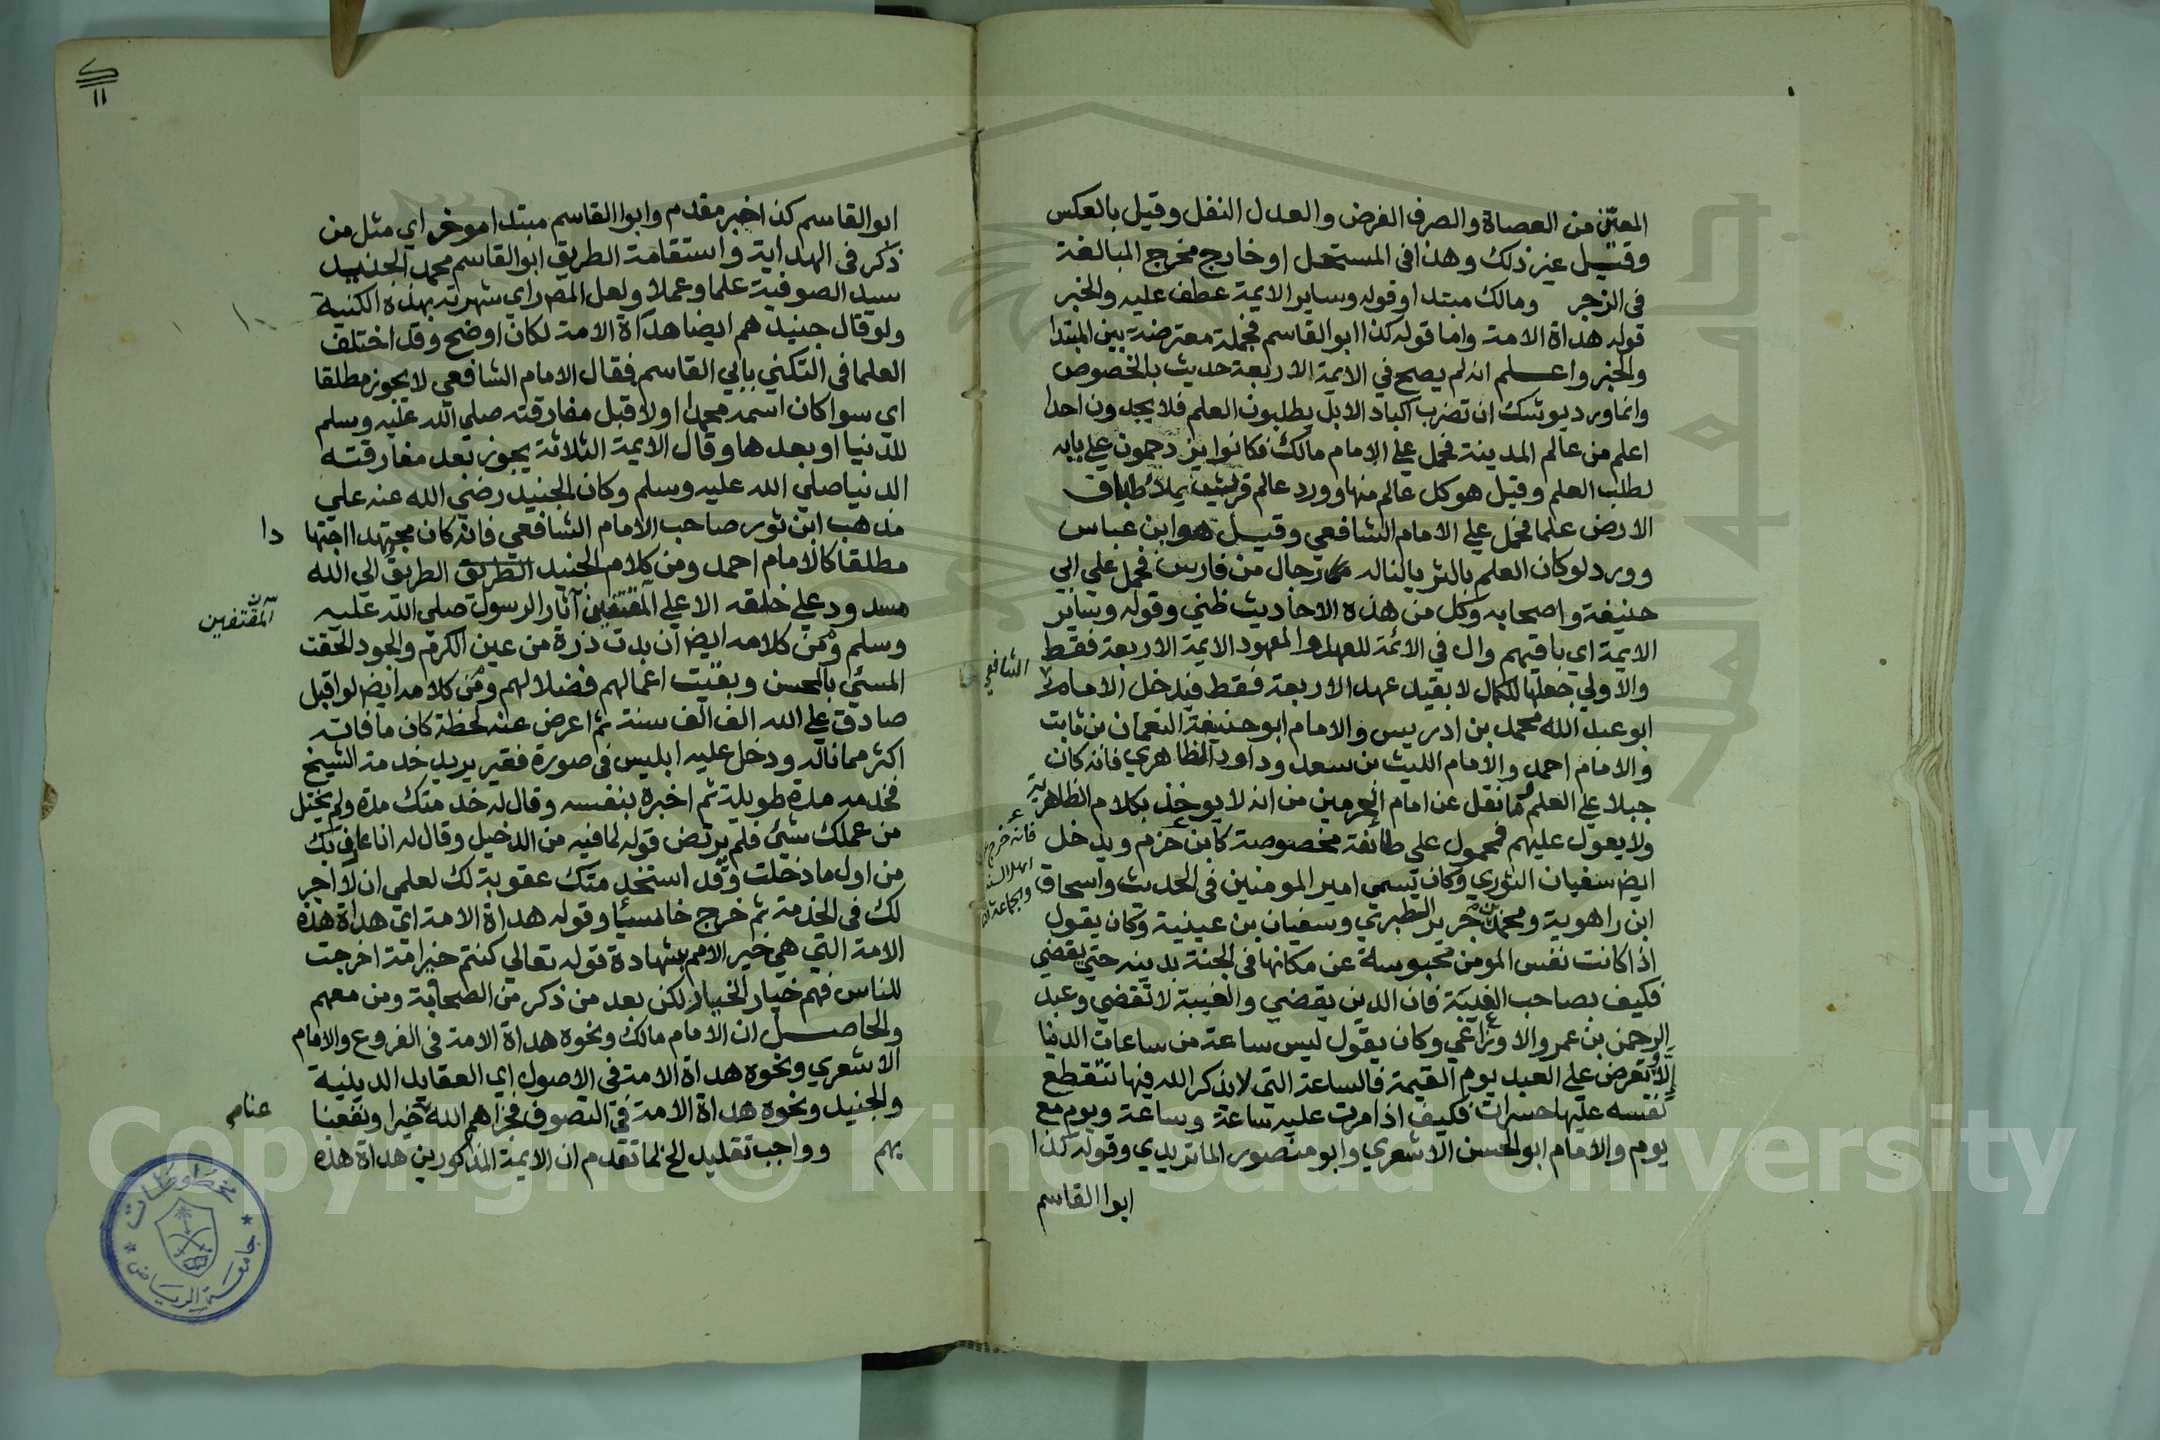 المعيّن من العصاة والصرف الفرض والعدل النفل وقيل بالعكس
وقيل غير ذلك وهذا في المستحل او خارج مخرج المبالغة
في الزجر ومالك مبتدا وقوله وساير الايمة عطف عليه والخبر
قوله هداة الامة واما قوله كذا ابو القاسم فجملة معترضة بين المبتدا
والخبر واعلم انه لم يصح في الايمة الاربعة حديث بالخصوص
وانما ورد يوشك ان تضرب اكباد الابل يطلبون العلم فلا يجدون احدا
اعلم من عالم المدينة فحمل علي الامام مالك فكانوا يزدحمون علي بابه
لطلب العلم وقيل هو كل عالم منها وورد عالم قريش يملا طباق
الارض علما فحمل علي الامام الشافعي وقيل هو ابن عباس
وورد لو كان العلم بالثريا لناله رجال من فارس فحمل علي ابي
حنيفة واصحابه وكل من هذه الاحاديث ظني وقوله وساير
الايمة اي باقيهم وال في الائمة للعهد والمعهود الايمة الاربعة فقط
والاولي جعلها للكمال لا بقيد عهد الاربعة فقط فيدخل الامام
الشافعي
ابو عبد الله محمد بن ادريس والامام ابو حنيفة النعمان بن ثابت
والامام احمد والامام الليث بن سعد وداود الظاهري فانه كان
جبلا في العلم وما نقل عن امام الحرمين من انه لا يوخذ بكلام الظاهرية
ولا يعول عليهم فمحمول علي طائفة مخصوصة كابن حزم ويدخل
فانه خرج
اهل السنة
والجماعة
ايض سفيان الثوري وكان يسمي امير المومنين في الحديث واسحاق
ابن راهوية ومحمد بن جرير الطبري وسفيان بن عيينة وكان يقول
اذا كانت نفس المومن محبوسة عن مكانها في الجنة بدينه حتي يقضي
فكيف بصاحب الغيبة فان الدين يقضي والغيبة لا تقضي وعبد
الرحمن بن عمرو الاوزاعي وكان يقول ليس ساعة من ساعات الدنيا
الا وتعرض علي العبد يوم القيمة فالساعة التي لا يذكر الله فيها تتقطع
نفسه عليها حسرات فكيف اذا مرت عليه ساعة وساعة ويوم مع
يوم والامام ابو الحسن الاشعري وابو منصور الماتريدي وقوله كذا
ابوا القاسم
١١
ابوا القاسم كذا خبر مقدم وابوا القاسم مبتدا موخر اي مثل من
ذكر في الهداية واستقامة الطريق ابو القاسم محمد الجنيد
سيد الصوفية علما وعملا ولعل المص راي شهرته بهذه الكنية
ولو قال جنيد هم ايضا هداة الامة لكان اوضح وقد اختلف
العلما في التكني بابي القاسم فقال الامام الشافعي لا يجوز مطلقا
اي سوا كان اسمه محمدا او لا قبل مفارقته صلي الله عليه وسلم
للدنيا او بعدها وقال الايمة الثلاثة يجوز بعد مفارقته
الدنيا صلي الله عليه وسلم وكان الجنيد رضي الله عنه علي
مذهب ابن ثور صاحب الامام الشافعي فانه كان مجتهدا اجتها
دا
مطلقا كالامام احمد ومن كلام الجنيد الطريق الطريق الي الله
مسدود علي خلقه الا علي المقتفين آثار الرسول صلي الله عليه
المقتفين
وسلم ومن كلامه ايض ان بدت ذرة من عين الكرم والجود الحقت
المسئي بالمحسن وبقيت اعمالهم فضلا لهم ومن كلامه ايض لو اقبل
صادق علي الله الف الف سنة ثم اعرض عنه لحظة كان ما فاته
اكثر مما ناله ودخل عليه ابليس في صورة فقير يريد خدمة الشيخ
فخدمه مدة طويلة ثم اخبره بنفسه وقال له خدمتك مدة ولم يختل
من عملك شيئ فلم يرتض قوله لما فيه من الدخيل وقال له انا عارف بك
من اول ما دخلت وقد استخدمتك عقوبة لك لعلمي ان لا اجر
لك في الخدمة ثم خرج خاسئا وقوله هداة الامة اي هداة هذه
الامة التي هي خير الامم بشهادة قوله تعالي كنتم خير امة اخرجت
للناس فهم خيار الخيار لكن بعد من ذكر من الصحابة ومن معهم
والحاصل ان الامام مالك ونحوه هداة الامة في الفروع والامام
الاشعري ونحوه هداة الامة في الاصول اي العقايد الدينية
والجنيد ونحوه هداة الامة في التصوف فجزاهم الله خيرا ونفعنا
عنا
بهم وواجب تقليد الخ لما تقدم ان الايمة المذكورين هداة هذه
مخطوطات
جامعة الرياض
جامعة الملك
Copyright © King Saud University